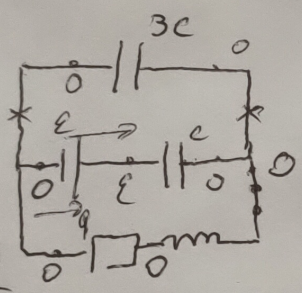 3C
0 0
ε c
0 ε 0 0
q
0 0